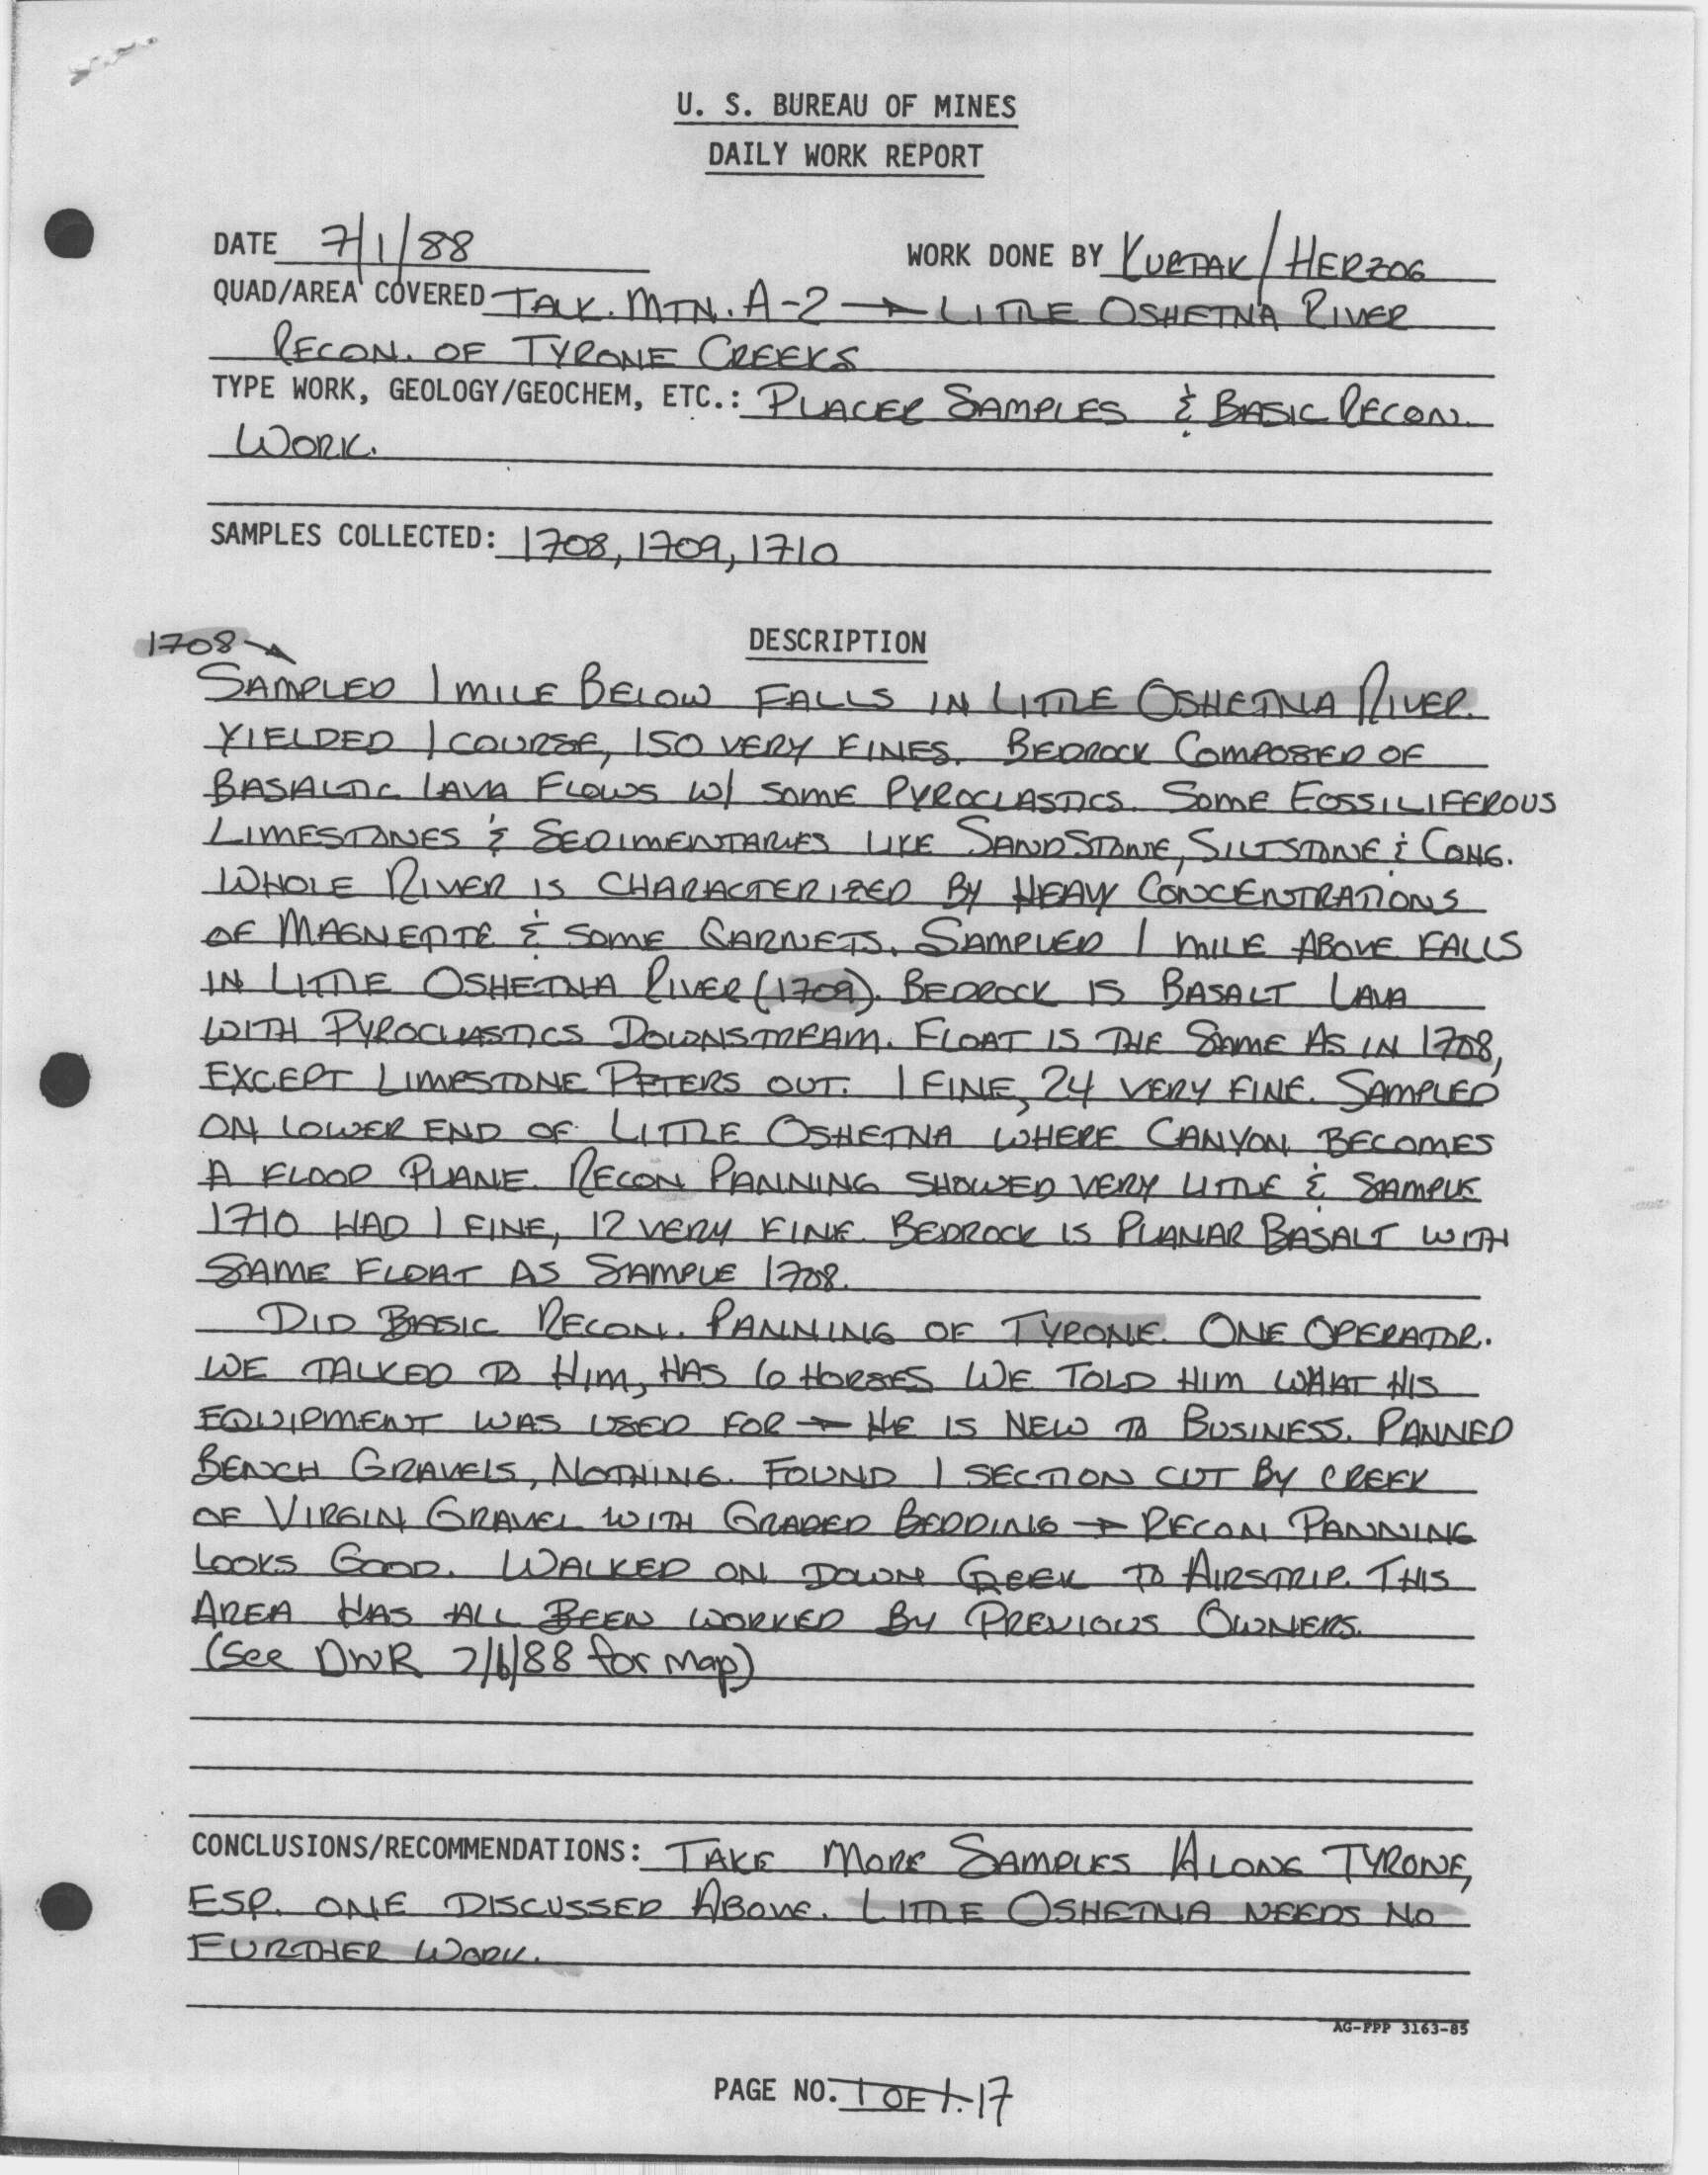 U. S. BUREAU OF MINES
DAILY WORK REPORT
DATE 7/1/88 WORK DONE BY KURTAK/HERZOG
QUAD/AREA COVERED TALK. MTN. A-2 → LITTLE OSHETNA RIVER
RECON. OF TYRONE CREEKS
TYPE WORK, GEOLOGY/GEOCHEM, ETC.: PLACER SAMPLES & BASIC RECON.
WORK.
SAMPLES COLLECTED: 1708, 1709, 1710
1708→ DESCRIPTION
SAMPLED 1 MILE BELOW FALLS IN LITTLE OSHETNA RIVER.
YIELDED 1 COURSE, 150 VERY FINES. BEDROCK COMPOSED OF
BASALTIC LAVA FLOWS W/ SOME PYROCLASTICS. SOME FOSSILIFEROUS
LIMESTONES & SEDIMENTARIES LIKE SANDSTONE, SILTSTONE & CONG.
WHOLE RIVER IS CHARACTERIZED BY HEAVY CONCENTRATIONS
OF MAGNETITE & SOME GARNETS. SAMPLED 1 MILE ABOVE FALLS
IN LITTLE OSHETNA RIVER (1709). BEDROCK IS BASALT LAVA
WITH PYROCLASTICS DOWNSTREAM. FLOAT IS THE SAME AS IN 1708,
EXCEPT LIMESTONE PETERS OUT. 1 FINE, 24 VERY FINE. SAMPLED
ON LOWER END OF LITTLE OSHETNA WHERE CANYON BECOMES
A FLOOD PLANE. RECON PANNING SHOWED VERY LITTLE & SAMPLE
1710 HAD 1 FINE, 12 VERY FINE. BEDROCK IS PLANAR BASALT WITH
SAME FLOAT AS SAMPLE 1708.
DID BASIC RECON. PANNING OF TYRONE. ONE OPERATOR.
WE TALKED TO HIM, HAS 6 HORSES WE TOLD HIM WHAT HIS
EQUIPMENT WAS USED FOR → HE IS NEW TO BUSINESS. PANNED
BENCH GRAVELS, NOTHING. FOUND 1 SECTION CUT BY CREEK
OF VIRGIN GRAVEL WITH GRADED BEDDING → RECON PANNING
LOOKS GOOD. WALKED ON DOWN CREEK TO AIRSTRIP. THIS
AREA HAS ALL BEEN WORKED BY PREVIOUS OWNERS.
(See DWR 7/6/88 for map)
CONCLUSIONS/RECOMMENDATIONS: TAKE MORE SAMPLES ALONG TYRONE,
ESP. ONE DISCUSSED ABOVE. LITTLE OSHETNA NEEDS NO
FURTHER WORK.
AG-PPP 3163-85
PAGE NO. 1 OF 1. 17